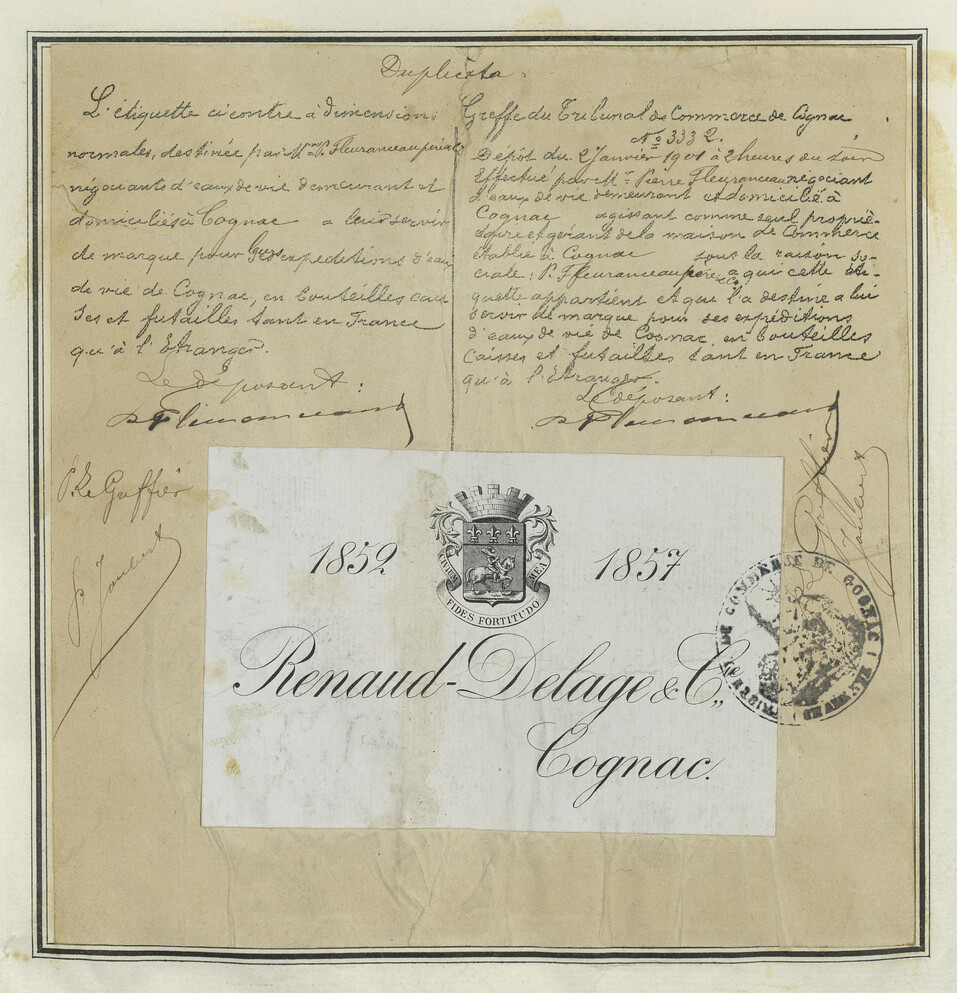 Duplicata.
L'étiquette ci contre à dimensions
normales, destinée par Mrs P. Fleuranceau père & Cie
négociants d'eaux de vie demeurant et
domiciliés à Cognac a leur servir
de marque pour leurs expéditions d'eaux
de vie de Cognac, en bouteilles cais
ses et futailles tant en France
qu'à l'Etranger.
Le déposant :
P Fleuranceau
P. Le Greffier
P. Joubert
Greffe du Tribunal de Commerce de Cognac
No 3332.
Dépôt du 2 Janvier 1901 à 2 heures du soir
Effectué par Mr Pierre Fleuranceau négociant
d'eaux de vie demeurant et domicilié à
Cognac agissant comme seul proprié-
taire et gérant de la maison de Commerce
établie à Cognac sous la raison so-
ciale : P. Fleuranceau père & Cie a qui cette éti-
quette appartient et qui l'a destinée a lui
servir de marque pour ses expéditions
d'eaux de vie de Cognac, en bouteilles
Caisses et futailles tant en France
qu'à l'Etranger.
Le déposant :
P Fleuranceau
P. Le Greffier
Joubert
1852 1857
CIVIUM MEA
FIDES FORTITUDO
Renaud-Delage & Cie,,
Cognac.
DE COMMERCE DE COGNAC